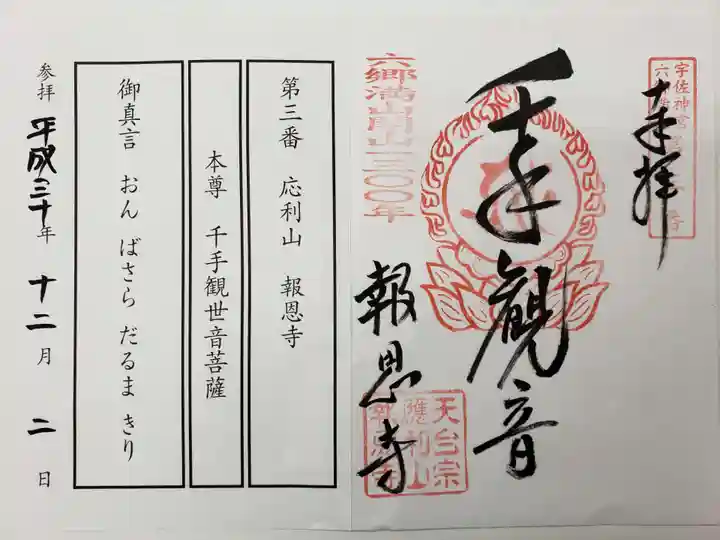 奉拝
宇佐神宮
千手観音
六郷満山開山一三〇〇年
報恩寺
天台宗
應利山
報恩寺
第三番 応利山 報恩寺
本尊 千手観世音菩薩
御真言 おん ばさら だるま きり
参拝 平成三十年 十二月 二日